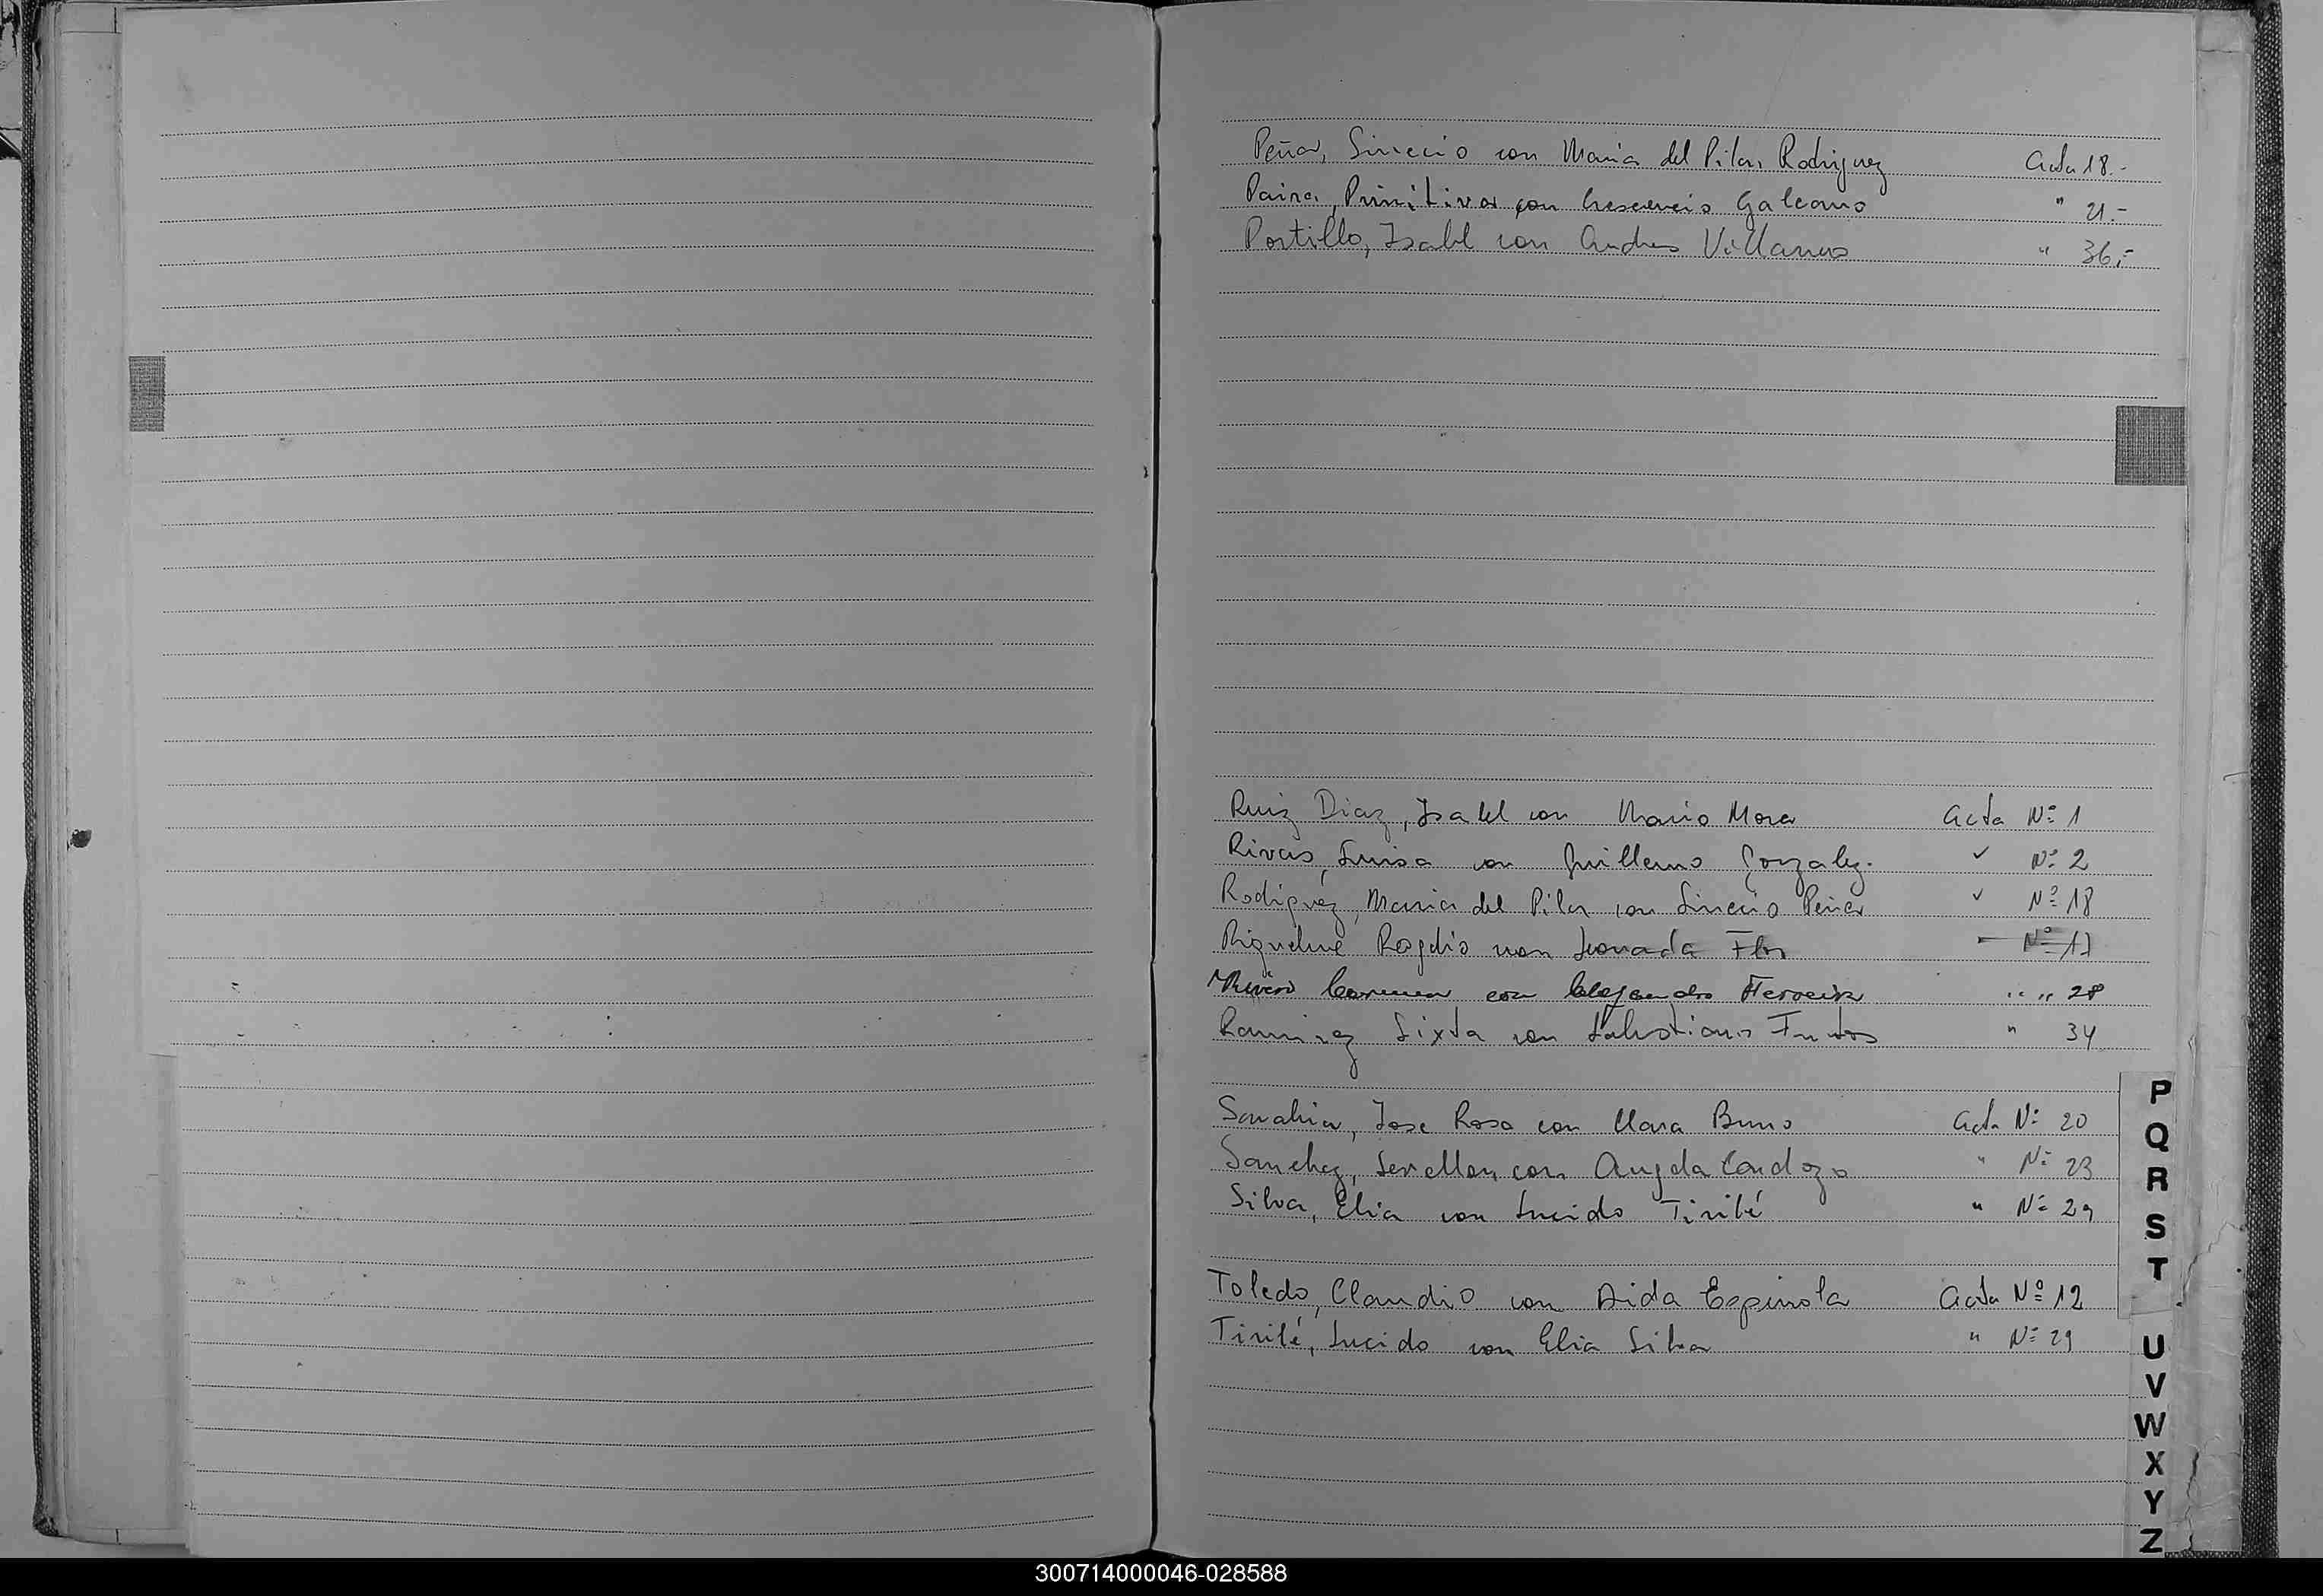 Peña, Sinecio con Maria del Pilar Rodriguez Acta 18.-
Paira, Primitiva con Crescencio Galeano " 21.-
Portillo, Isabel con Andres Villanus " 36.-
Ruiz Diaz, Isabel con Mario Mora Acta Nº 1
Rivas, Luisa con Guillermo Gonzalez. ✓ Nº 2
Rodriguez, Maria del Pilar con Sinecio Peña ✓ Nº 18
Riquelme Rogelio con Leonarda Flor - Nº 17
Rivero Carmen con Alejandro Ferreira " " 28
Ramirez Sixta con Salustiano Frutos " 34
Sanabria, Jose Rosa con Clara Bruno Acta Nº 20
Sanchez, con Angela Cardozo " Nº 23
Silva, Elia con Lucido Tirilé " Nº 29
Toledo, Claudio con Aida Espinola Acta Nº 12
Tirilé, Lucido con Elia Silva " Nº 29
P
Q
R
S
T
U
V
W
X
Y
Z
300714000046-028588